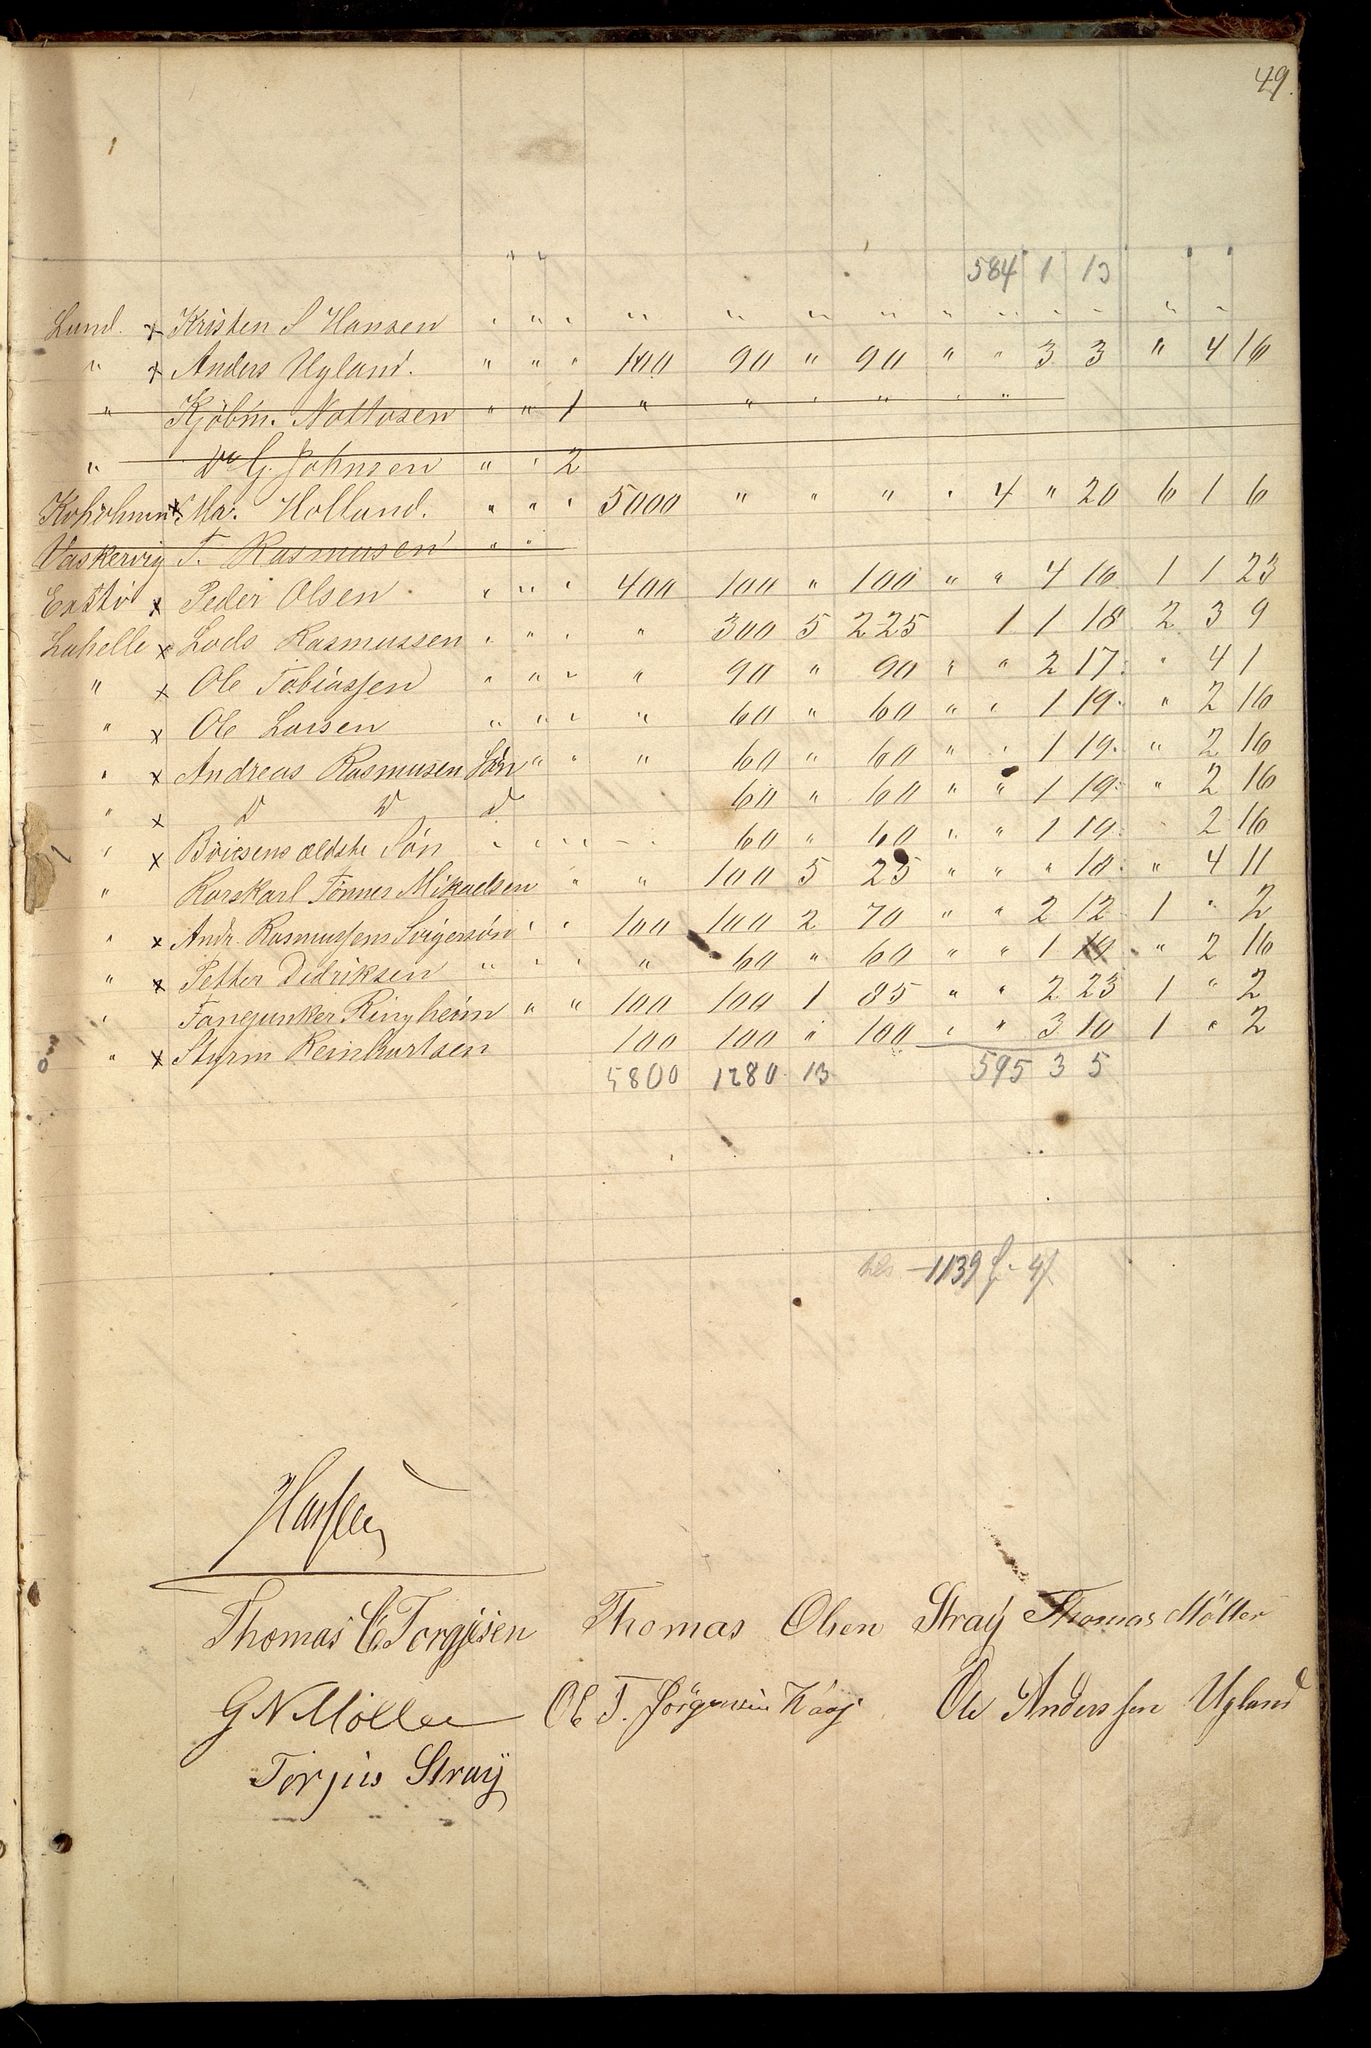 49.
584 1 13
Lund. x Kristen S Hansen " " " " " " " " " " " " "
" x Anders Ugland. " " " 100 90 " 90 " " 3 3 " 4 16
" Kjöbm. Nottosen " " 1 " " " " " "
" Do G. Johnsen " " 2
x Mar. Holland. " " " 5000 " " " " 4 " 20 6 1 6
Vaskervig T. Rasmusen " "
x Peder Olsen " " " 400 100 " 100 " " 4 16 1 1 23
Lahelle x Lods Rasmussen " " " " 300 5 225 1 1 18 2 3 9
" x Ole Tobiassen " " " " 90 " 90 " " 2 17 " 4 1
" x Ole Larsen " " " " 60 " 60 " " 1 19 " 2 16
" x Andreas Rasmusen Søn " " " 60 " 60 " " 1 19 " 2 16
" x D D d. 60 " 60 " " 1 19 " 2 16
" x ældste Søn " " " " 60 " 60 " " 1 19 " 2 16
" Tønnes Mikaelsen " " 100 5 25 " " " 18 " 4 11
" x Andr. Rasmussens Svigersøn " " 100 100 2 70 " " 2 12 1 " 2
" x Petter Didriksen " " " " 60 " 60 " " 1 19 " 2 16
" Fangjunker Ringheim " " 100 100 1 85 " " 2 23 1 " 2
" x Styrm Reinhartsen 100 100 " 100 " " 3 10 1 " 2
5800 1280 13 595 3 5
1139
Thomas C Torgjusen Thomas Olsen Stray Thomas Möller
G N Möller Ole T. Jörgensen Kaas Ole Anderssen Ugland
Terjus Stray